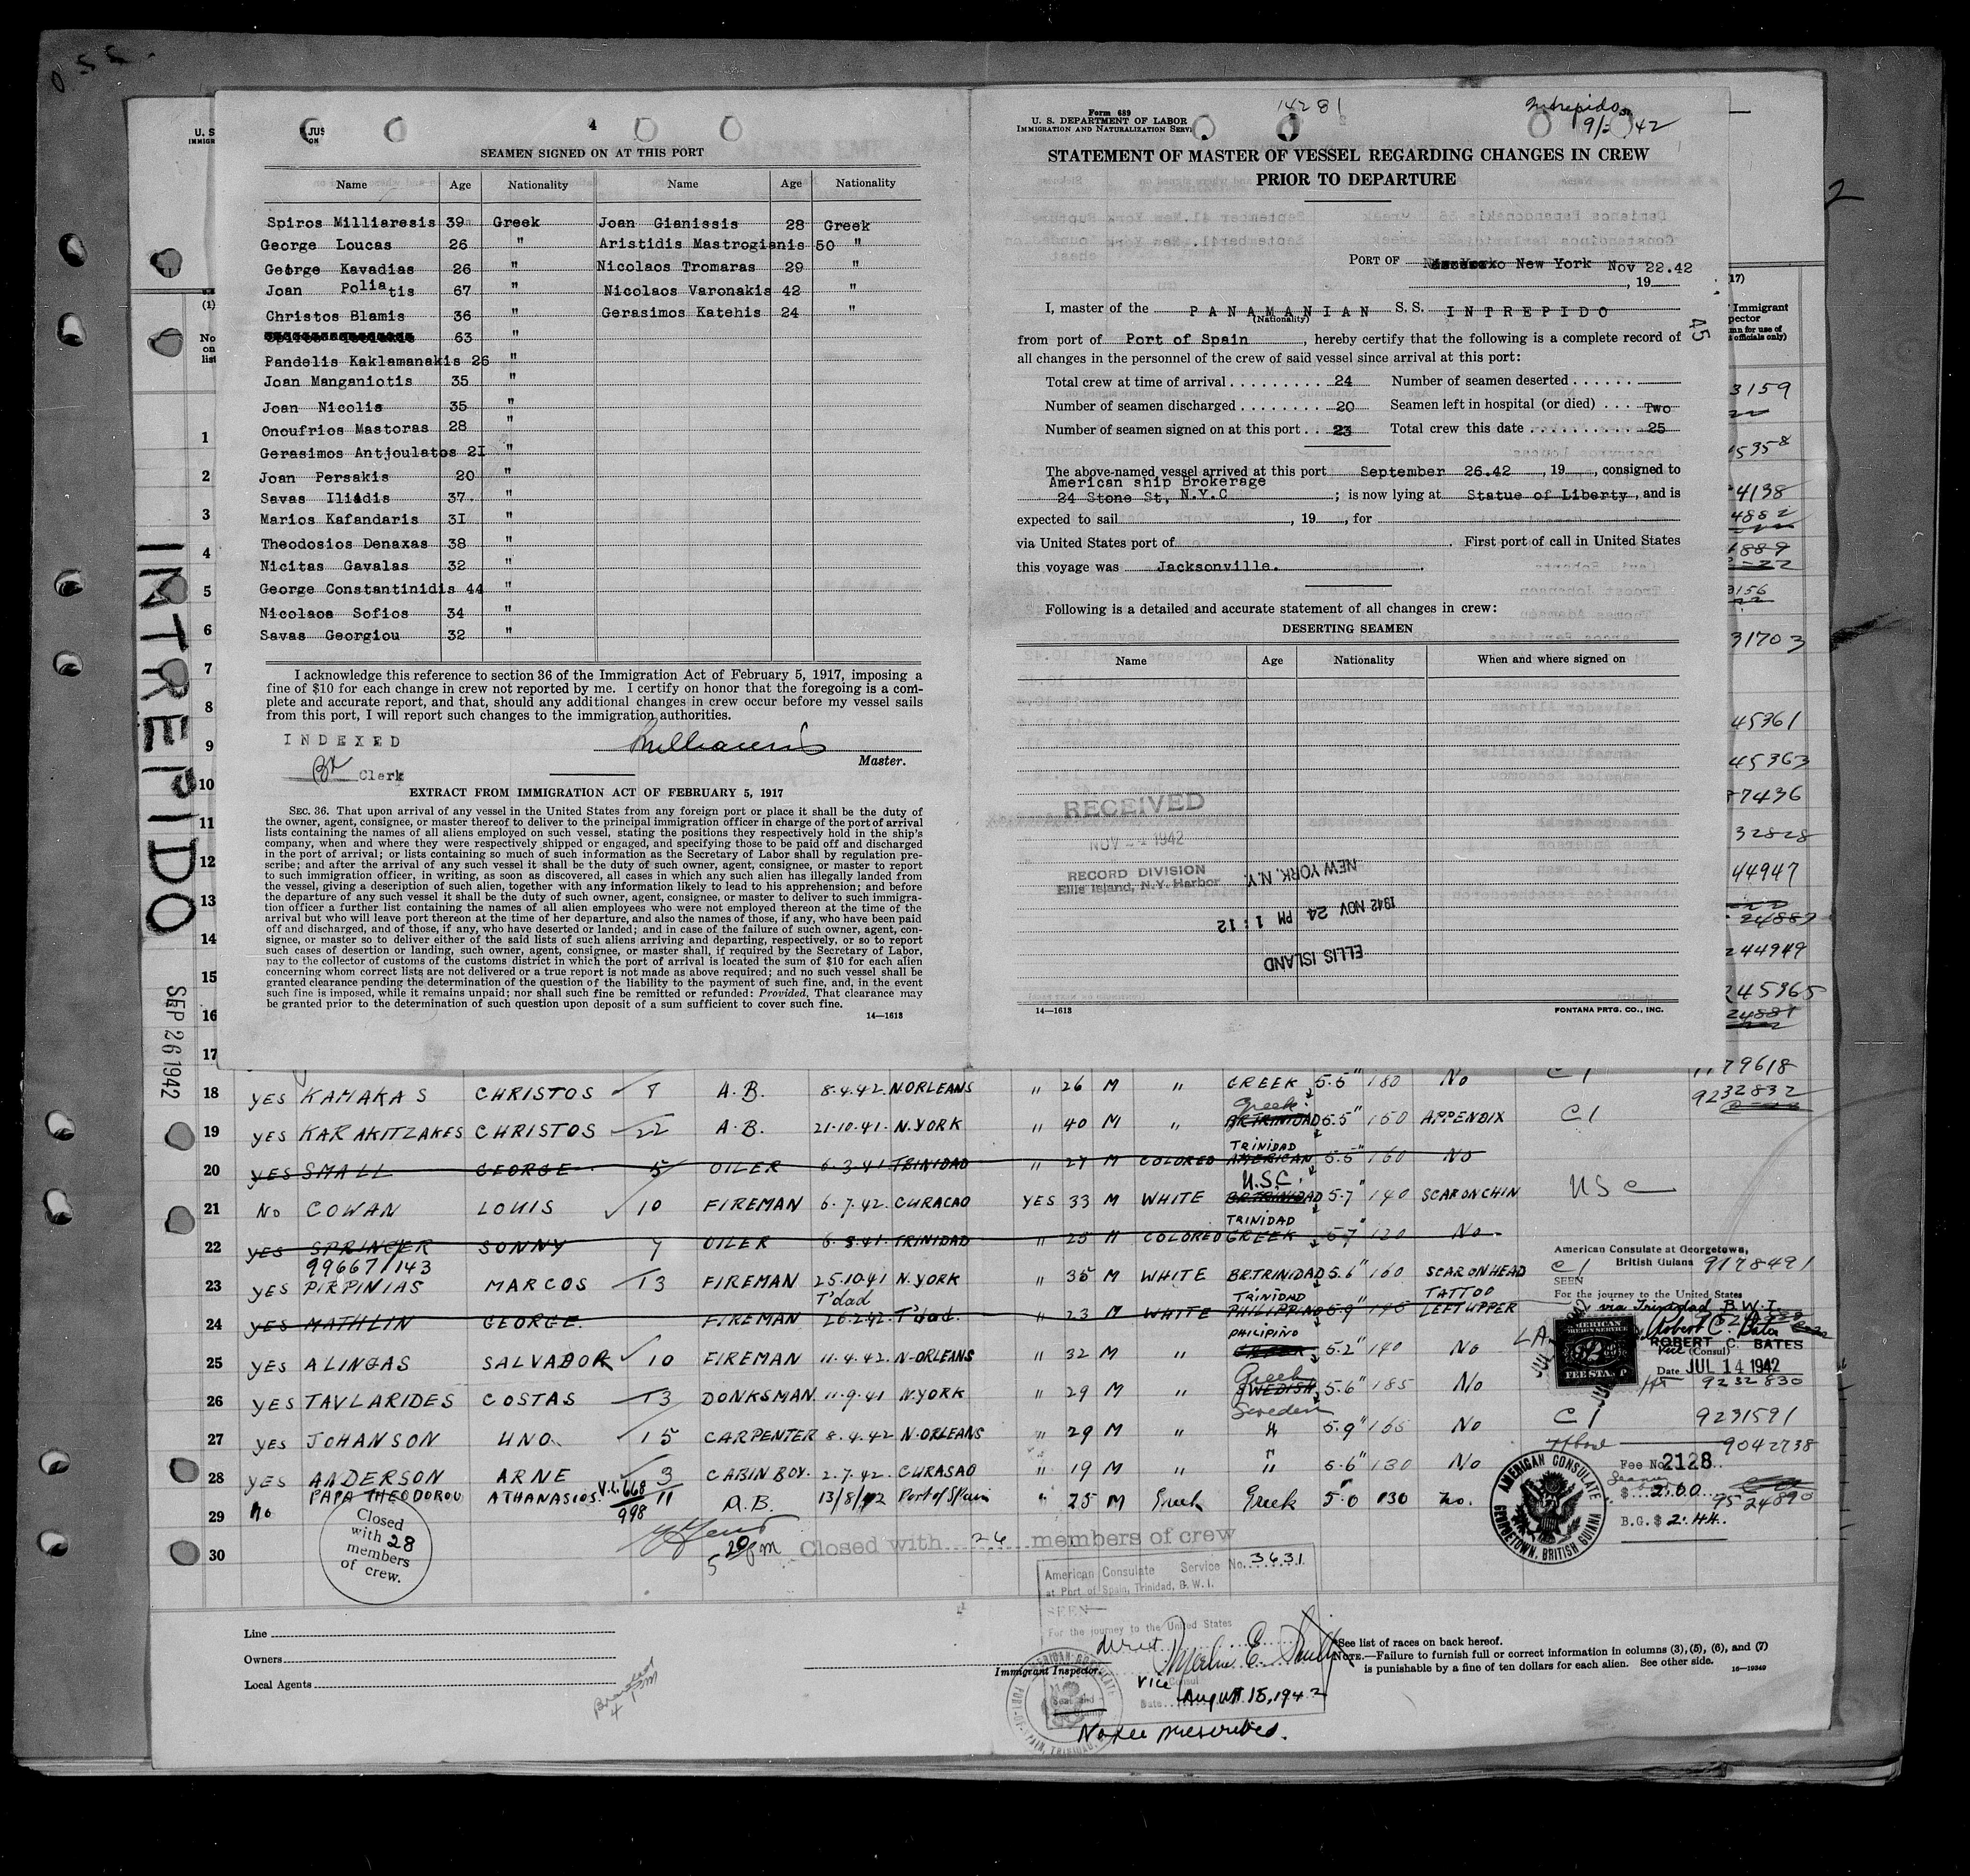 SEAMEN SIGNED ON AT THIS PORT
4
Name Age Nationality Name Age Nationality
Spiros Milliaresis 39 Greek Joan Gianissis 28 Greek
George Loucas 26 " Aristidis Mastrogianis 50 "
George Kavadias 26 " Nicolaos Tromaras 29 "
Joan Poliatis 67 " Nicolaos Varonakis 42 "
Christos Blamis 36 " Gerasimos Katehis 24 "
63 "
Pandelis Kaklamanakis 26 "
Joan Manganiotis 35 "
Joan Nicolis 35 "
Onoufrios Mastoras 28 "
Gerasimos Antjoulatos 2I "
Joan Persakis 20 "
Savas Iliadis 37. "
Marios Kafandaris 3I "
Theodosios Denaxas 38 "
Nicitas Gavalas 32 "
George Constantinidis 44 "
Nicolaos Sofios 34 "
Savas Georgiou 32 "
I acknowledge this reference to section 36 of the Immigration Act of February 5, 1917, imposing a
fine of $10 for each change in crew not reported by me. I certify on honor that the foregoing is a com-
plete and accurate report, and that, should any additional changes in crew occur before my vessel sails
from this port, I will report such changes to the immigration authorities.
INDEXED
Clerk
Master.
EXTRACT FROM IMMIGRATION ACT OF FEBRUARY 5, 1917
SEC. 36. That upon arrival of any vessel in the United States from any foreign port or place it shall be the duty of
the owner, agent, consignee, or master thereof to deliver to the principal immigration officer in charge of the port of arrival
lists containing the names of all aliens employed on such vessel, stating the positions they respectively hold in the ship's
company, when and where they were respectively shipped or engaged, and specifying those to be paid off and discharged
in the port of arrival; or lists containing so much of such information as the Secretary of Labor shall by regulation pre-
scribe; and after the arrival of any such vessel it shall be the duty of such owner, agent, consignee, or master to report
to such immigration officer, in writing, as soon as discovered, all cases in which any such alien has illegally landed from
the vessel, giving a description of such alien, together with any information likely to lead to his apprehension; and before
the departure of any such vessel it shall be the duty of such owner, agent, consignee, or master to deliver to such immigra-
tion officer a further list containing the names of all alien employees who were not employed thereon at the time of the
arrival but who will leave port thereon at the time of her departure, and also the names of those, if any, who have been paid
off and discharged, and of those, if any, who have deserted or landed; and in case of the failure of such owner, agent, con-
signee, or master so to deliver either of the said lists of such aliens arriving and departing, respectively, or so to report
such cases of desertion or landing, such owner, agent, consignee, or master shall, if required by the Secretary of Labor,
pay to the collector of customs of the customs district in which the port of arrival is located the sum of $10 for each alien
concerning whom correct lists are not delivered or a true report is not made as above required; and no such vessel shall be
granted clearance pending the determination of the question of the liability to the payment of such fine, and, in the event
such fine is imposed, while it remains unpaid; nor shall such fine be remitted or refunded: Provided, That clearance may
be granted prior to the determination of such question upon deposit of a sum sufficient to cover such fine.
14—1613
Form 689
U. S. DEPARTMENT OF LABOR
IMMIGRATION AND NATURALIZATION SERVI
14281
Intrepido
STATEMENT OF MASTER OF VESSEL REGARDING CHANGES IN CREW
PRIOR TO DEPARTURE
PORT OF New York Nov 22.42
, 19
I, master of the PANAMANIAN S. S. INTREPIDO
(Nationality)
from port of Port of Spain, hereby certify that the following is a complete record of
all changes in the personnel of the crew of said vessel since arrival at this port:
Total crew at time of arrival 24 Number of seamen deserted
Number of seamen discharged 20 Seamen left in hospital (or died) Two
Number of seamen signed on at this port 23 Total crew this date 25
The above-named vessel arrived at this port September 26.42, 19, consigned to
American ship Brokerage
24 Stone St, N.Y.C; is now lying at Statue of Liberty, and is
expected to sail, 19, for
via United States port of. First port of call in United States
this voyage was Jacksonville.
Following is a detailed and accurate statement of all changes in crew:
DESERTING SEAMEN
Name Age Nationality When and where signed on
RECEIVED
NOV 24 1942
RECORD DIVISION
Ellis Island, N.Y. Harbor
NEW YORK, N.Y.
1942 NOV 24 PM 1:12
ELLIS ISLAND
14—1613
FONTANA PRTG. CO., INC.
45
INTREPIDO
SEP 26 1942
1
2
3
4
5
6
7
8
9
10
11
12
13
14
15
16
17
18 YES KAMAKAS CHRISTOS 8 A.B. 8.4.42. N.ORLEANS " 26 M " GREEK 5.5" 180 No C1 9232832
19 YES KARAKITZAKES CHRISTOS 22 A.B. 21.10.41. N.YORK " 40 M " Greek 5.5" 150 APPENDIX C1
20 YES SMALL GEORGE 5 OILER 6.3.41 TRINIDAD " 27 M COLORED TRINIDAD AMERICAN 5.5" 160 No
21 No COWAN LOUIS 10 FIREMAN 6.7.42. CURACAO YES 33 M WHITE U.S.C. BR.TRINIDAD 5.7" 140 SCAR ON CHIN USC
22 YES SPRINGER SONNY 7 OILER 6.8.41. TRINIDAD " 25 M COLORED TRINIDAD GREEK 5.7" 120 No
99667/143
23 YES PIRPINIAS MARCOS 13 FIREMAN 25.10.41 N.YORK " 35 M WHITE BR.TRINIDAD 5.6" 160 SCAR ON HEAD C1 9178491
24 YES MATHLIN GEORGE. FIREMAN 20.2.42. T'dad. " 23 M WHITE TRINIDAD PHILIPPINO 5.9" TATTOO LEFT UPPER
25 YES ALINGAS SALVADOR 10 FIREMAN 11.4.42. N.ORLEANS " 32 M " PHILIPINO 5.2" 140 No
26 YES TAVLARIDES COSTAS 13 DONKSMAN. 11.9.41 N.YORK " 29 M " Greek SWEDISH 5.6" 185 No 9232830
27 YES JOHANSON UNO 15 CARPENTER 8.4.42 N.ORLEANS " 29 M " Sweden " 5.9" 165 No C1 9231591
28 YES ANDERSON ARNE 3 CABIN BOY. 2.7.42. CURASAO " 19 M " " 5.6" 130 No 9042738
29 no PAPA THEODOROU ATHANASIOS. 11 A.B. 13/8/42 Port of Spain " 25 M Greek Greek 5.0 130 no. 9524890
30
Closed
with 28
members
of crew.
Closed with 26 members of crew
American Consulate at Georgetown,
British Guiana
SEEN
For the journey to the United States
via Trinidad B.W.I.
ROBERT C. BATES
(Consul)
Date JUL 14 1942
AMERICAN CONSULATE
GEORGETOWN, BRITISH GUIANA
Fee No. 2128
$ 2.00
B.G. $ 2.44.
American Consulate Service No. 3631
at Port of Spain, Trinidad, B.W.I.
SEEN
For the journey to the United States
direct
Vice Consul
Date August 15, 1942
No fee prescribed.
Line
Owners
Local Agents
Immigrant Inspector.
See list of races on back hereof.
NOTE.—Failure to furnish full or correct information in columns (3), (5), (6), and (7)
is punishable by a fine of ten dollars for each alien. See other side.
16—19349